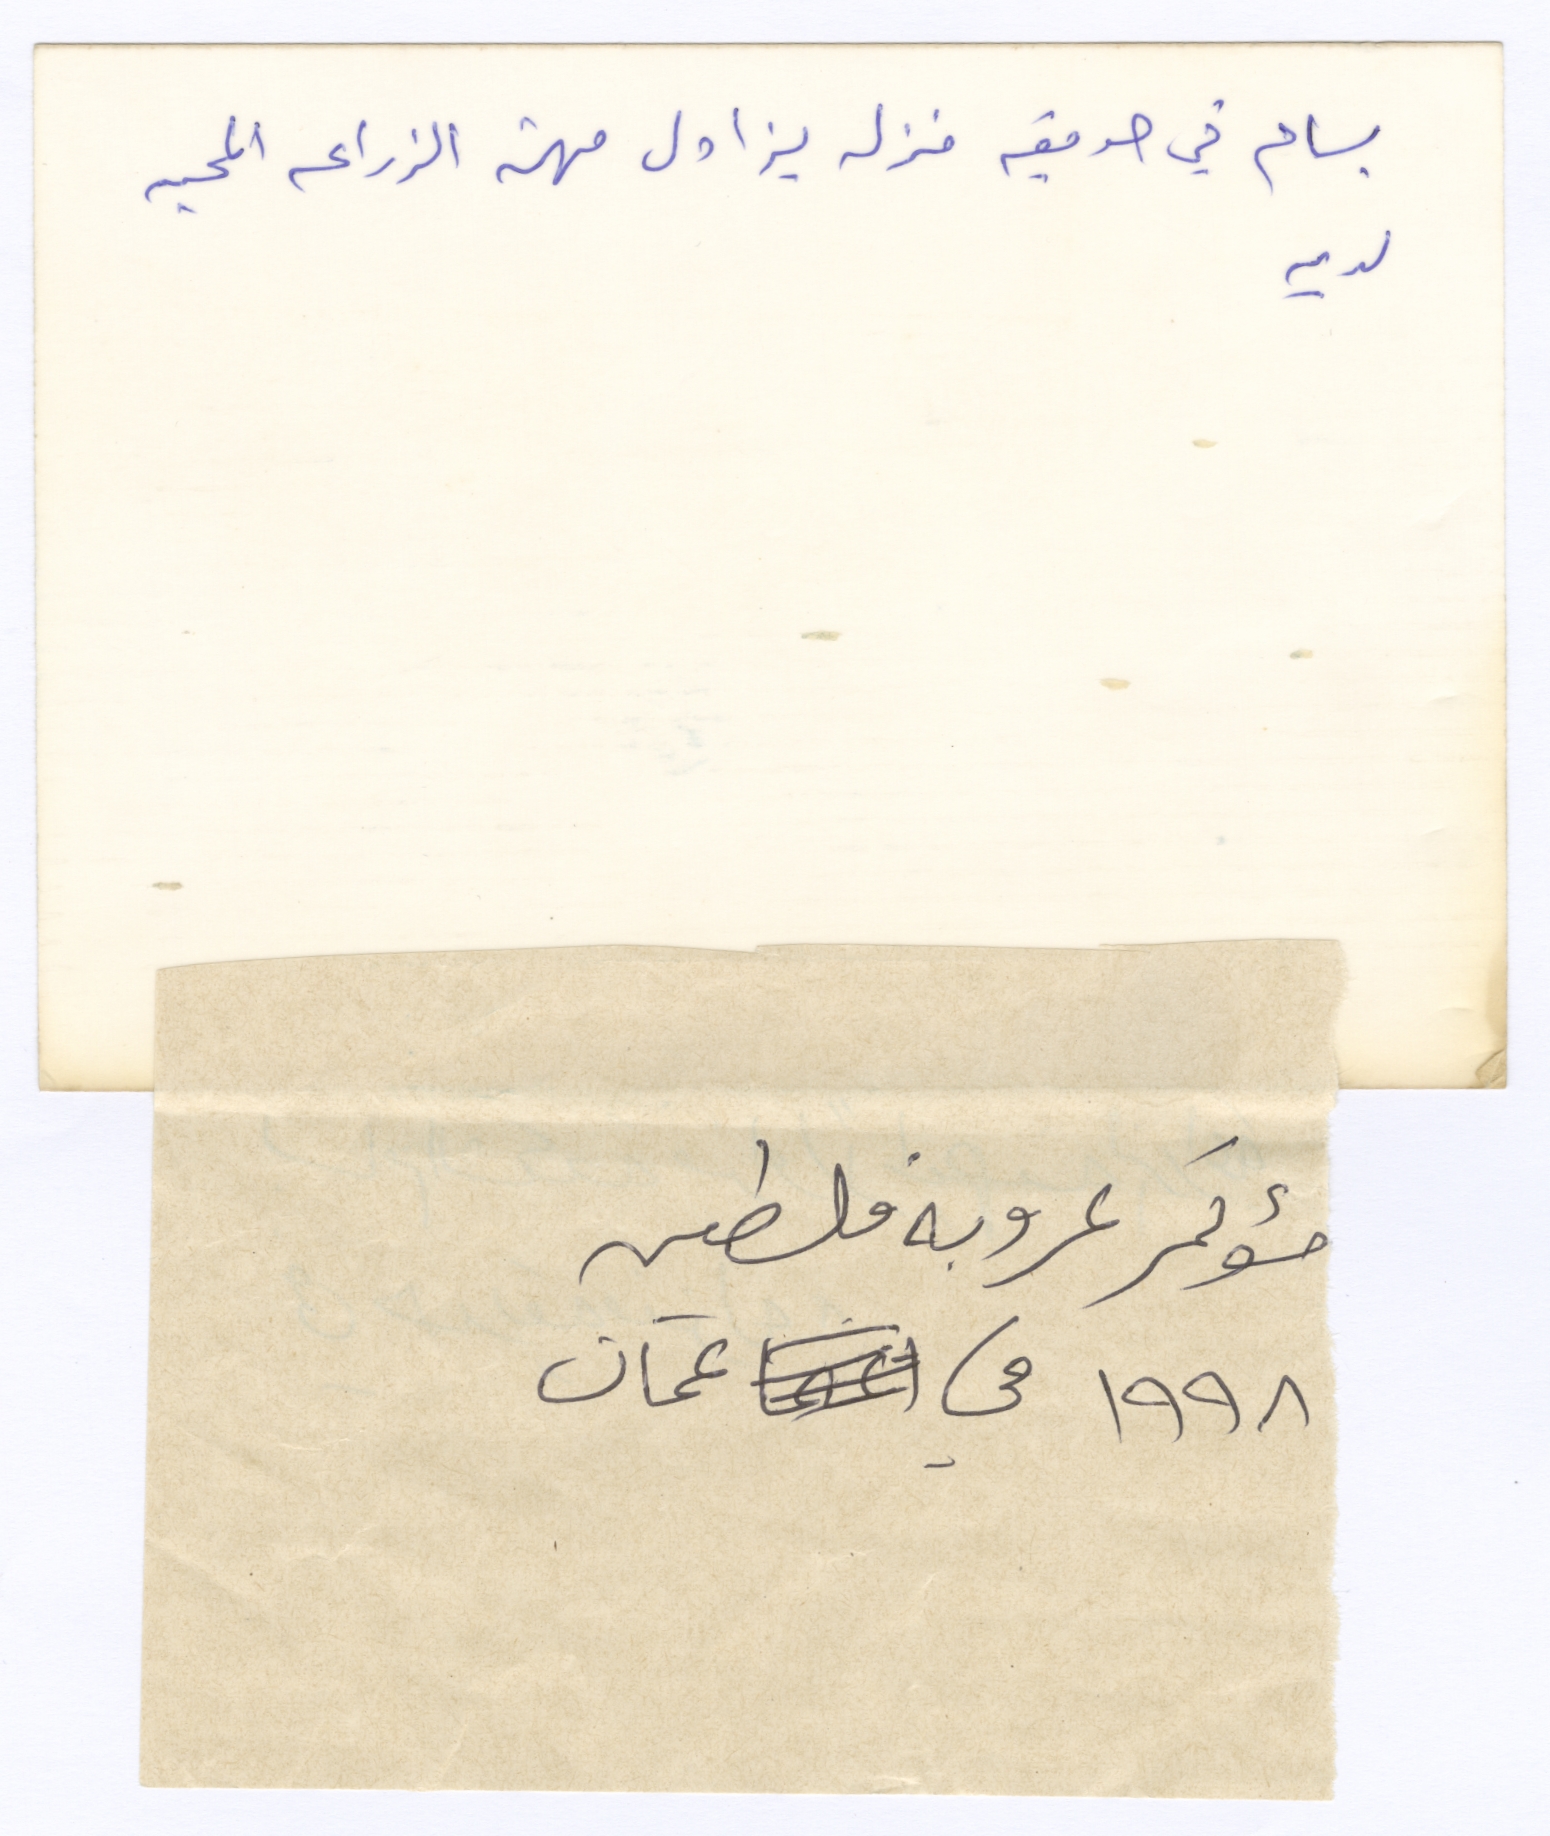 بسام في حديقة منزله يزاول مهنة الزراعه المحببه
لديه
مؤتمر عروبة فلسطين
١٩٩٨ في عمّان